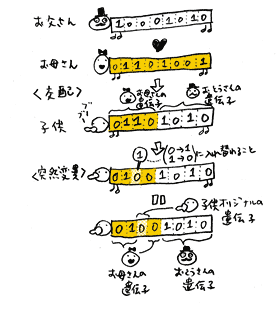 お父さん
1000010
お母さん
01101001
<交配>
お母さんの
遺伝子
おとうさんの
遺伝子
子供
ブリ
01101010
1
(0→1
1→0)に入れ替えること
<突然変異>
01001010
子供オリジナルの
遺伝子
01001010
お母さんの
遺伝子
おとうさんの
遺伝子